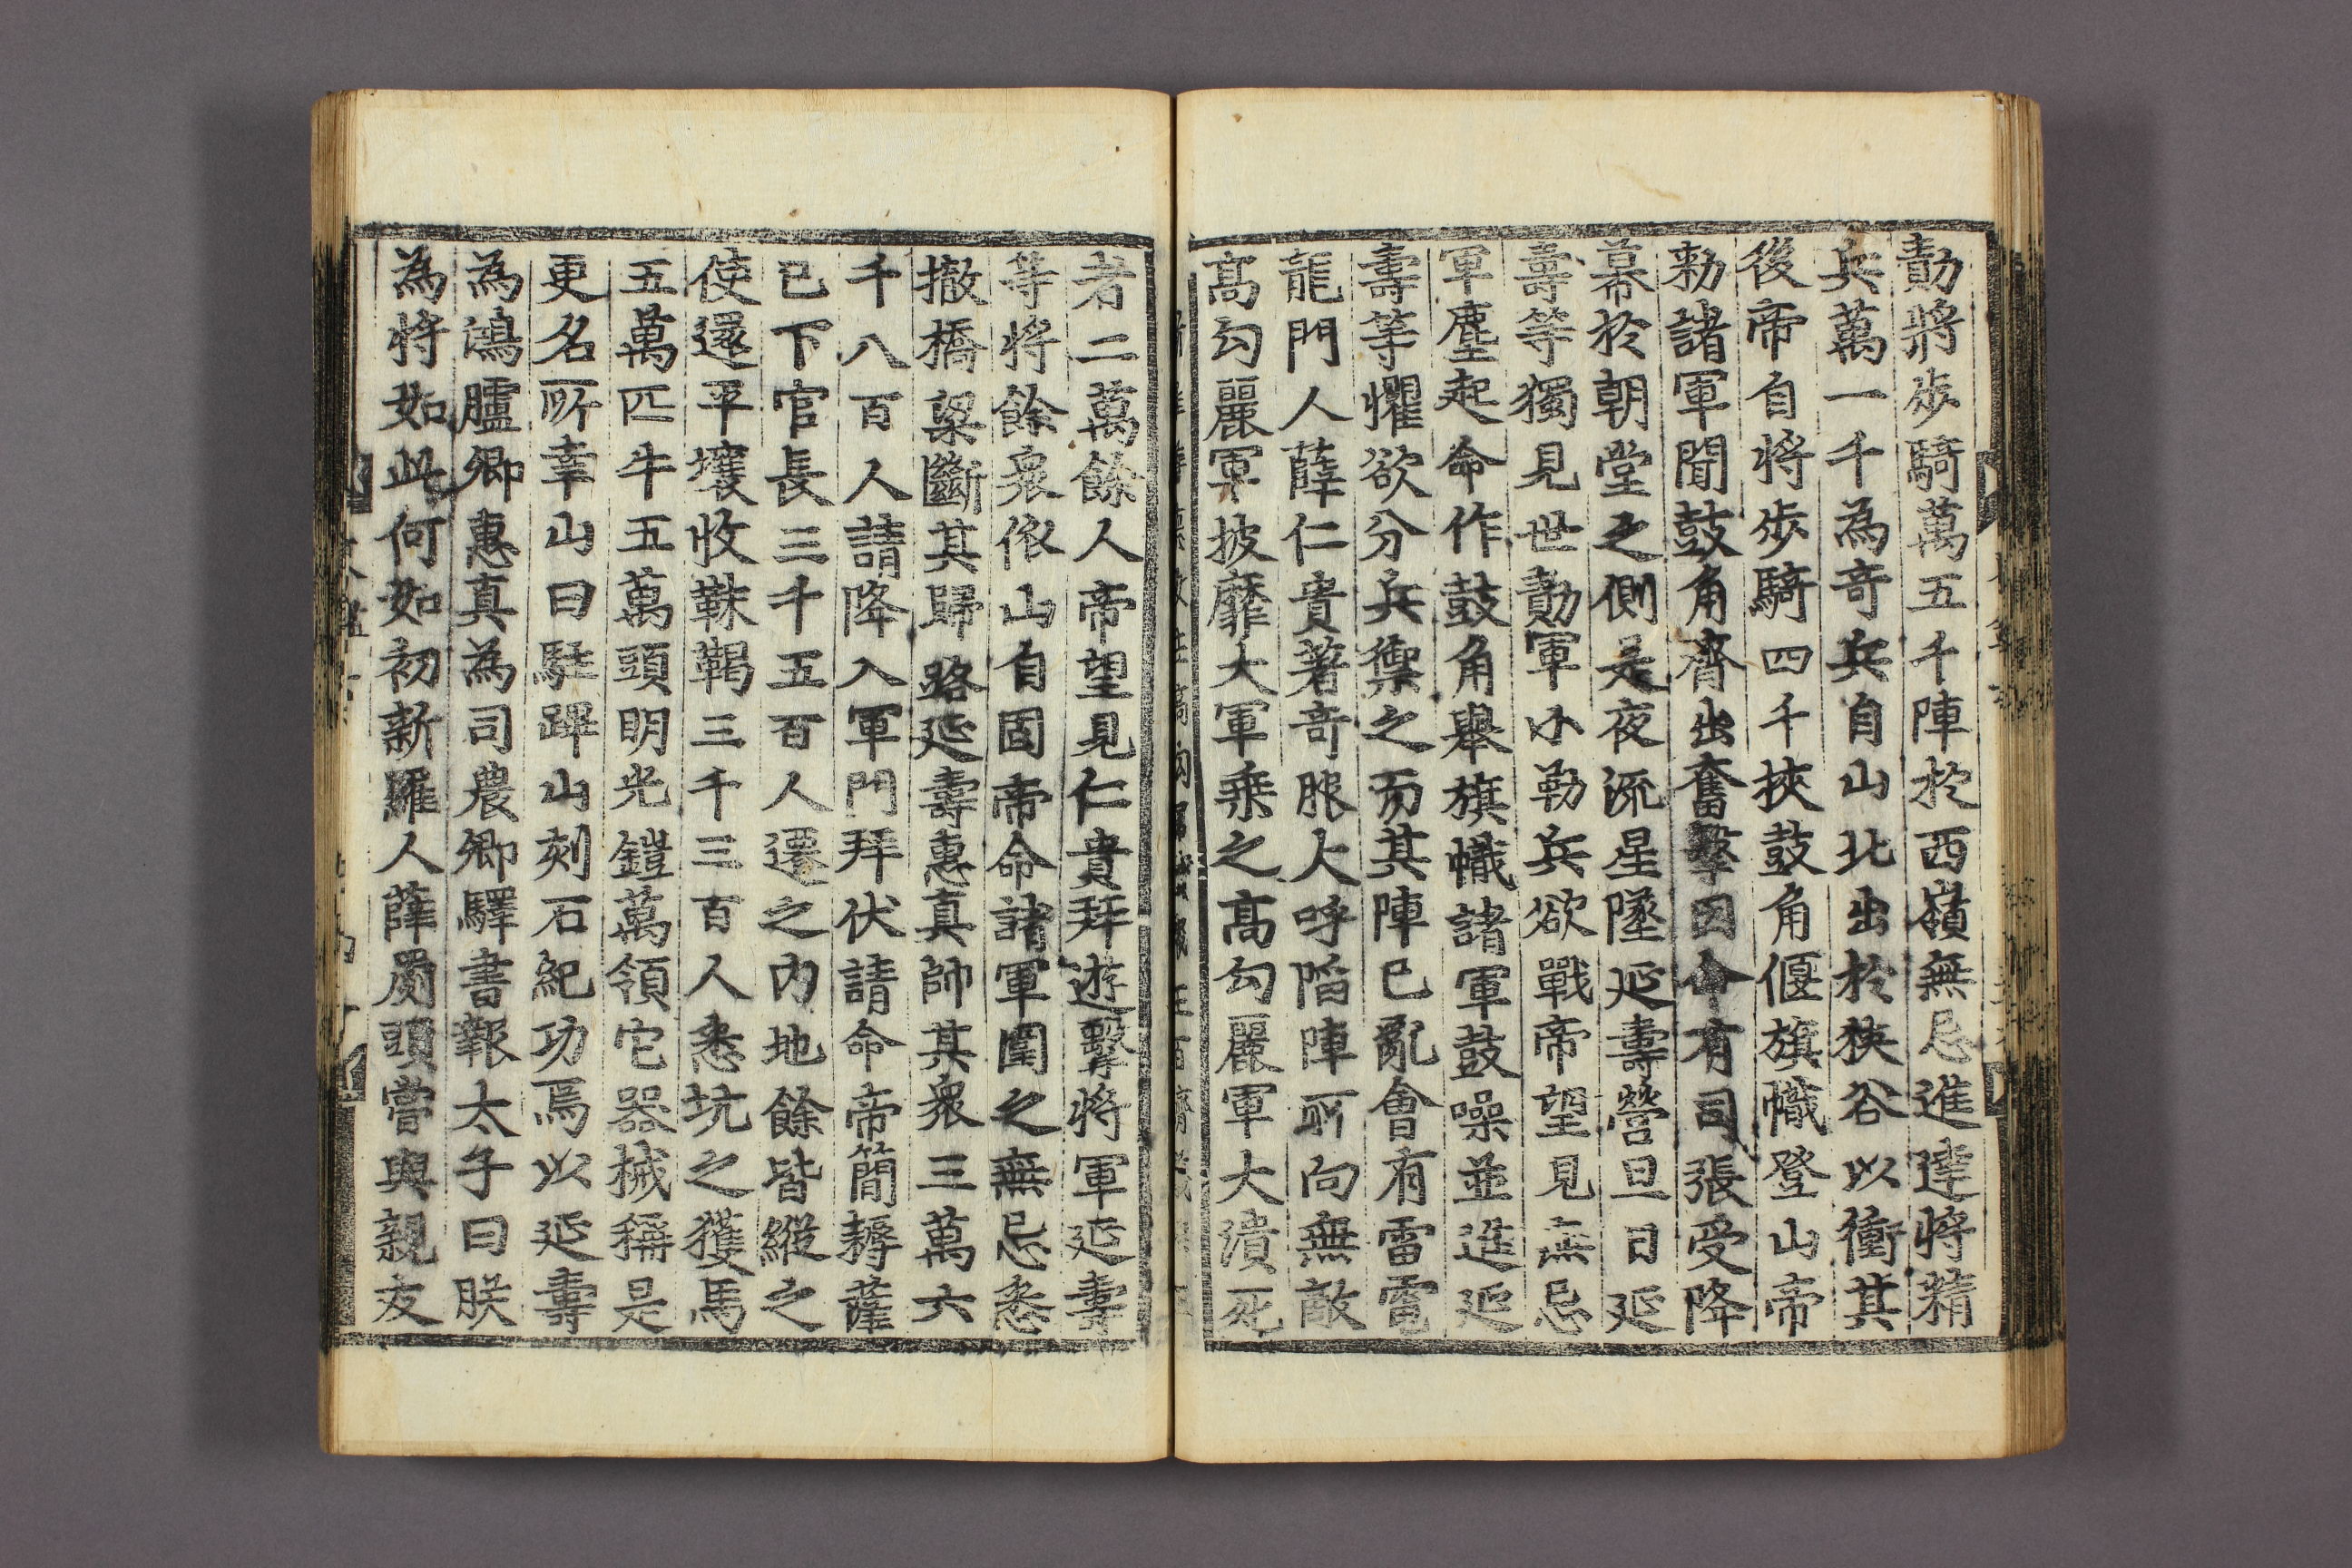 勣將步騎萬五千陣於西嶺無忌進達將精
兵萬一千為奇兵自山北出於狹谷以衝其
後帝自將步騎四千挾鼓角偃旗幟登山帝
勑諸軍聞鼓角齊出奮擊因命有司張受降
幕於朝堂之側是夜流星墜延壽營旦日延
壽等獨見世勣軍小勒兵欲戰帝望見無忌
軍塵起命作鼓角舉旗幟諸軍鼓噪並進延
壽等懼欲分兵禦之而其陣已亂會有雷電
龍門人薛仁貴著奇服大呼陷陣所向無敵
高勾麗軍披靡大軍乘之高勾麗軍大潰死
者二萬餘人帝望見仁貴拜遊擊將軍延壽
等將餘衆依山自固帝命諸軍圍之無忌悉
撤橋梁斷其歸路延壽惠真帥其衆三萬六
千八百人請降入軍門拜伏請命帝簡耨薩
已下官長三千五百人遷之內地餘皆縱之
使還平壤收靺鞨三千三百人悉坑之獲馬
五萬匹牛五萬頭明光鎧萬領它器械稱是
更名所幸山曰駐蹕山刻石紀功焉以延壽
為鴻臚卿惠真為司農卿驛書報太子曰朕
為將如此何如初新羅人薛罽頭嘗與親友